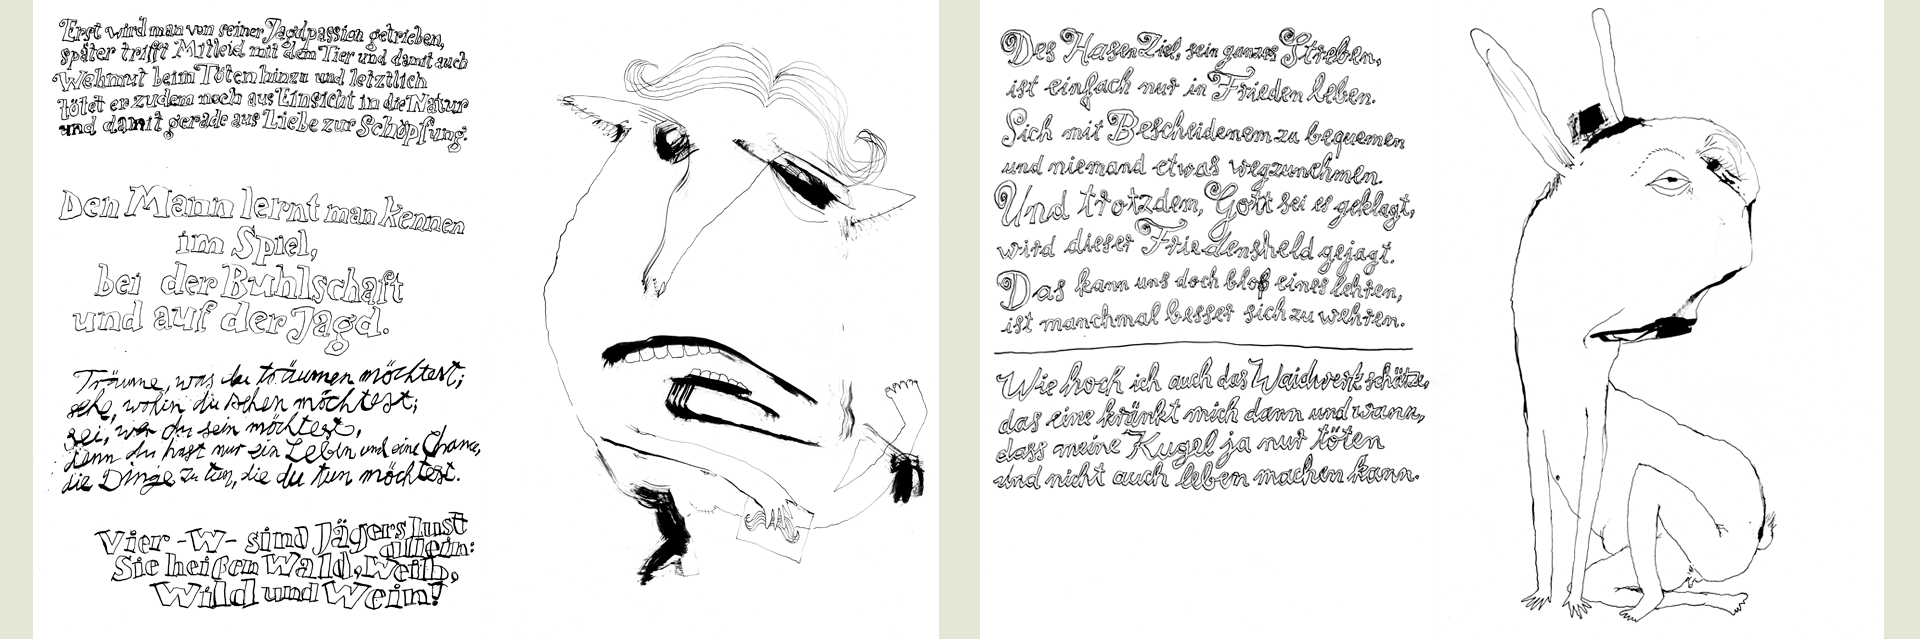 Erst wird man von seiner Jagdpassion getrieben,
später trifft Mitleid mit dem Tier und damit auch
Wehmut beim Töten hinzu und letztlich
tötet er zudem noch aus Einsicht in die Natur
und damit gerade aus Liebe zur Schöpfung.
Den Mann lernt man kennen
im Spiel,
bei der Buhlschaft
und auf der Jagd.
Träume, was du träumen möchtest;
gehe, wohin du gehen möchtest;
sei, wer du sein möchtest,
denn du hast nur ein Leben und eine Chance,
die Dinge zu tun, die du tun möchtest.
Vier -W- sind Jägers lust
allein:
Sie heißen Wald, Weib,
Wild und Wein!
Des Hasen Ziel, sein ganzes Streben,
ist einfach nur in Frieden leben.
Sich mit Bescheidenem zu bequemen
und niemand etwas wegzunehmen.
Und trotzdem, Gott sei es geklagt,
wird dieser Friedensheld gejagt.
Das kann uns doch bloß eines lehren,
ist manchmal besser sich zu wehren.
Wie hoch ich auch das Waidwerk schätze,
das eine kränkt mich dann und wann,
dass meine Kugel ja nur töten
und nicht auch leben machen kann.